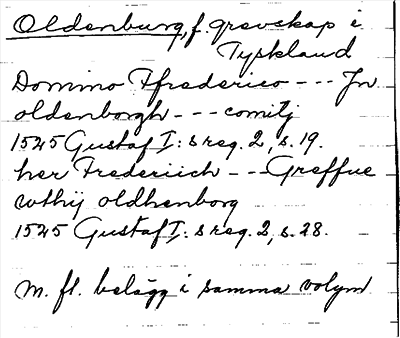 Oldenburg, f. grevskap i
Tyskland
Domino Ffrederico --- Jn
oldenborgh --- comitj
1525 Gustaf I:s reg. 2, s. 19.
her Frederiich -- Greffue
wthij oldhenborg
1525 Gustaf I:s reg. 2, s. 28.
M. fl. belägg i samma volym